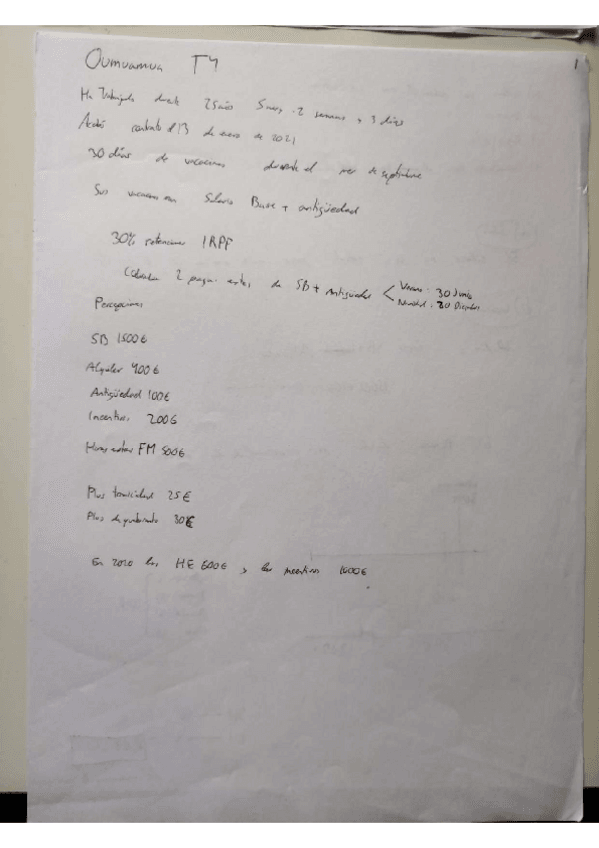 Oumuamua T4
1
Ha Trabajado durante 25 años 5 meses 2 semanas y 3 días
Acabó contrato el 13 de enero de 2021
30 días de vacaciones durante el mes de septiembre
Sus vacaciones son Salario Base + antigüedad
30% retenciones IRPF
2 pagas extras de SB + Antigüedad < Verano: 30 Junio
Navidad: 20 Diciembre
Percepciones
SB 1500€
Alquiler 400€
Antigüedad 100€
Incentivos 200€
Horas extras FM 500€
Plus toxicidad 25€
Plus de 30€
En 2020 las HE 600€ y los incentivos 1000€